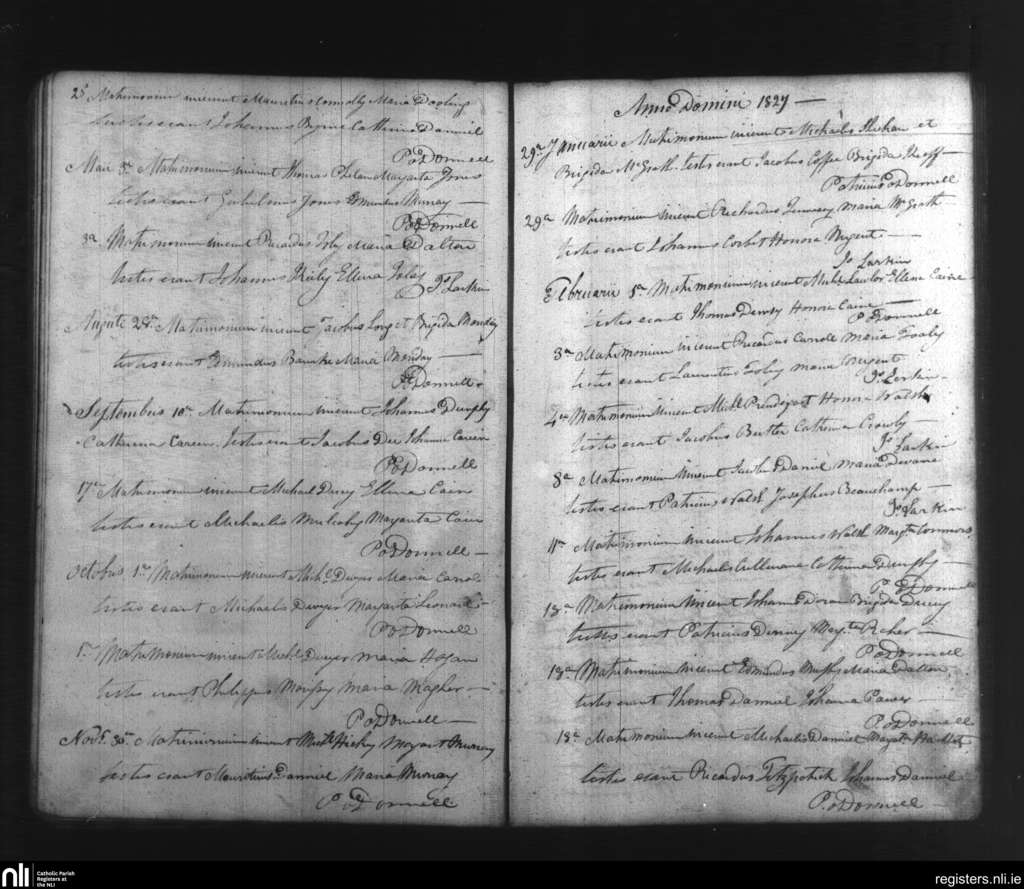 25 Matrimonium inierunt Mauritius Connolly Maria Dooling
testes erant Johannes Byrne Catherina Danniel
P. O'Donnell
Maii 3a Matrimonium inierunt Thomas Phelan Margarita Jones
testes erant Gulielmus Jones Edmundus Murray
P. O'Donnell
3a Matrimonium inierunt Ricardus Maria Dalton
testes erant Johannes Kiely Ellena
Js Larkin
Auguste 28a Matrimonium inierunt Jacobus Long et Brigida Monday
testes erant Edmundus Maria Monday
P. O'Donnell
Septembus 10a Matrimonium inierunt Johannes Dunphy
Catherina Careen testes erant Jacobus Dee Johanna Careen
P. O'Donnell
17a Matrimonium inierunt Michael Ellena Cain
testes erant Michaelis Mulcahy Margarita Cain
P. O'Donnell
Octobus 1a Matrimonium inierunt Michl Dwyer Maria
testes erant Michaelis Dwyer Margarita Leonard
P. O'Donnell
Matrimonium inierunt Michl Dwyer Maria Hogan
testes erant Philippus Maria Magher
P. O'Donnell
Novr 30a Matrimonium inierunt Michl Hickey Margart Murray
testes erant Mauritius Danniel Maria Murray
P. O'Donnell
Anno Domini 1827
29a Januarii Matrimonium inierunt Michaelis et
Brigida McGrath testes erant Jacobus Brigida
Patricius O'Donnell
29a Matrimonium inierunt Richardus Maria McGrath
testes erant Johannes Corbet Honora Nugent
Js Larkin
Februarii 1a Matrimonium inierunt Michl Lawlor Ellena Caine
testes erant Thomas Honora Caine
P. O'Donnell
3a Matrimonium inierunt Ricardus Carroll Maria Fooly
testes erant Laurentius Foley Maria Nugent
Js Larkin
4a Matrimonium inierunt Michl Prendergast Honora Walsh
testes erant Jacobus Butler Catherina Crowly
Js Larkin
8a Matrimonium inierunt Jacobus Daniel Maria Devane
testes erant Patricius Walsh Josephus Beauchamp
Js Larkin
11a Matrimonium inierunt Johannes Walsh Margta Connors
testes erant Michaelis Cullenane Catherina Dunphy
P. O'Donnell
18a Matrimonium inierunt Johannes Doran Brigida
testes erant Patricius Margta
P. O'Donnell
18a Matrimonium inierunt Edmundus Murphy Maria Dalton
testes erant Thomas Danniel Johanna Power
P. O'Donnell
18a Matrimonium inierunt Michaelis Danniel Margat Bartlett
testes erant Ricardus Fitzpatrick Johannes Danniel
P. O'Donnell
nli
Catholic Parish
Registers at
the NLI
registers.nli.ie